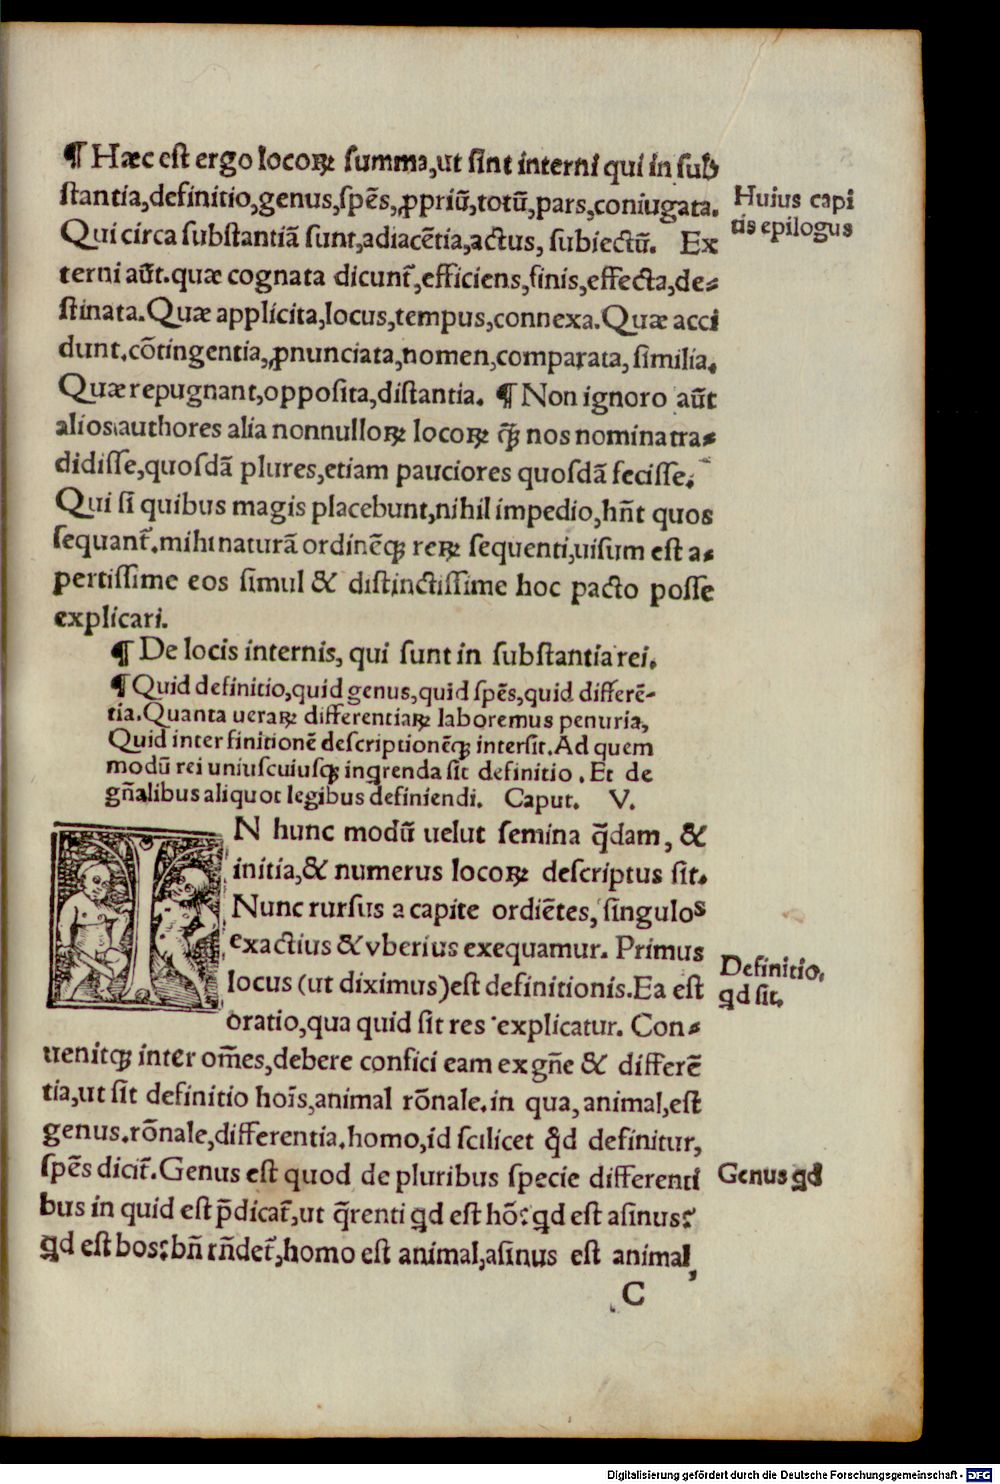 ¶ Hæc est ergo locoꝝ summa,ut sint interni qui in sub
stantia,definitio,genus,spēs,ꝓpriū,totū,pars,coniugata.
Huius capi
tis epilogus
Qui circa substantiā sunt,adiacētia,actus, subiectū. Ex
terni aūt.quæ cognata dicunt̃,efficiens,finis,effecta,de⸗
stinata.Quæ applicita,locus,tempus,connexa.Quæ acci
dunt.cōtingentia,ꝓnunciata,nomen,comparata, similia.
Quæ repugnant,opposita,distantia. ¶ Non ignoro aūt
alios authores alia nonnulloꝝ locoꝝ ꝙ̃ nos nomina tra⸗
didisse,quosdā plures,etiam pauciores quosdā fecisse.
Qui si quibus magis placebunt,nihil impedio,hñt quos
sequant̃.mihi naturā ordinēqꝫ reꝝ sequenti,uisum est a⸗
pertissime eos simul & distinctissime hoc pacto posse
explicari.
¶ De locis internis, qui sunt in substantia rei.
¶ Quid definitio,quid genus,quid spēs,quid differē-
tia.Quanta ueraꝝ differentiaꝝ laboremus penuria,
Quid inter finitionē descriptionēqꝫ intersit.Ad quem
modū rei uniuscuiusqꝫ inqrenda sit definitio . Et de
gñalibus aliquot legibus definiendi. Caput. V.
IN hunc modū uelut semina q̄dam, &
initia,& numerus locoꝝ descriptus sit.
Nunc rursus a capite ordiētes, singulos
exactius & vberius exequamur. Primus
locus (ut diximus)est definitionis.Ea est
Definitio,
qd sit.
oratio,qua quid sit res explicatur. Con⸗
uenitqꝫ inter om̄es,debere confici eam ex gñe & differē
tia,ut sit definitio hoīs,animal rōnale.in qua, animal,est
genus.rōnale,differentia.homo,id scilicet qd definitur,
spēs dicit̃.Genus est quod de pluribus specie differenti
Genus qd
bus in quid est p̄dicat̃,ut q̄renti qd est hō: qd est asinus:
qd est bos:bñ rñdet̃,homo est animal,asinus est animal,
C
Digitalisierung gefördert durch die Deutsche Forschungsgemeinschaft - DFG